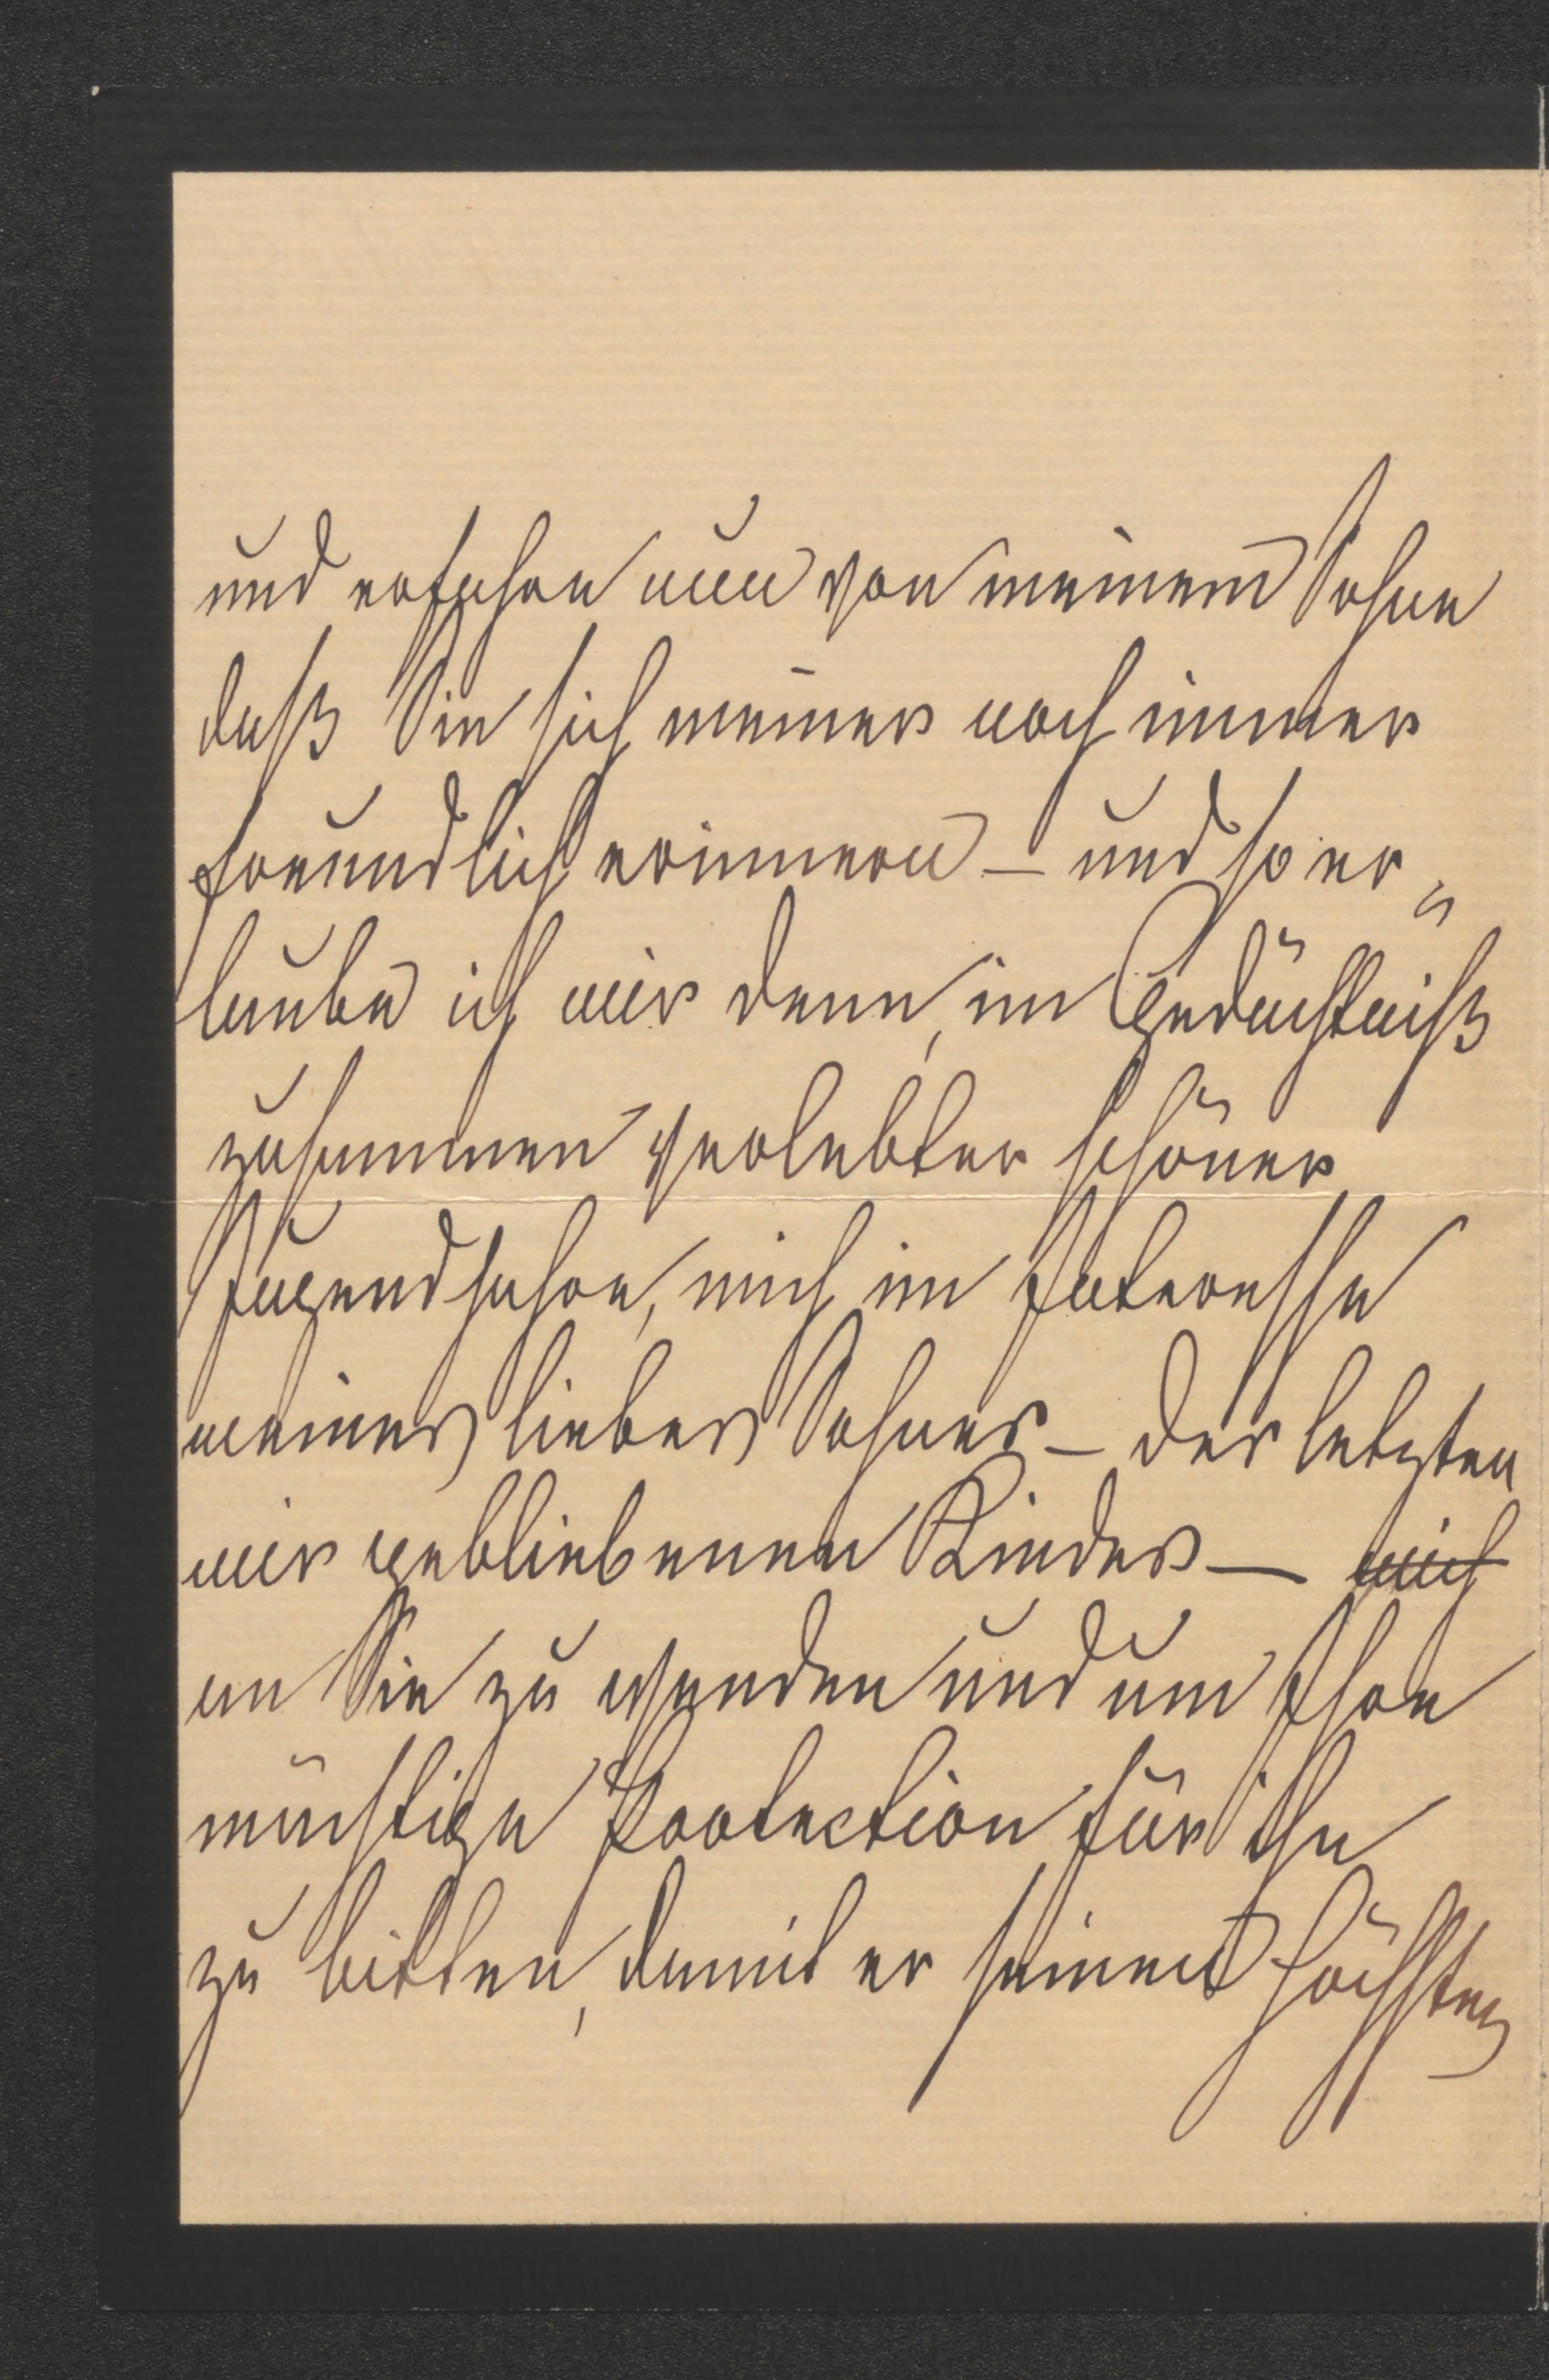 und erfahre nun von meinem Sohne
daß Sie sich meiner noch immer
freundlich erinnern – und so er„
laube ich mir denn, im Gedächtniß
zusammen verlebter schöner
Jugendjahre, mich im Interesse
meines lieben Sohnes – des letzten
mir gebliebenen Kindes – mich
an Sie zu wenden und um Ihre
mächtige Protection für ihn
zu bitten, damit er seinen höchsten